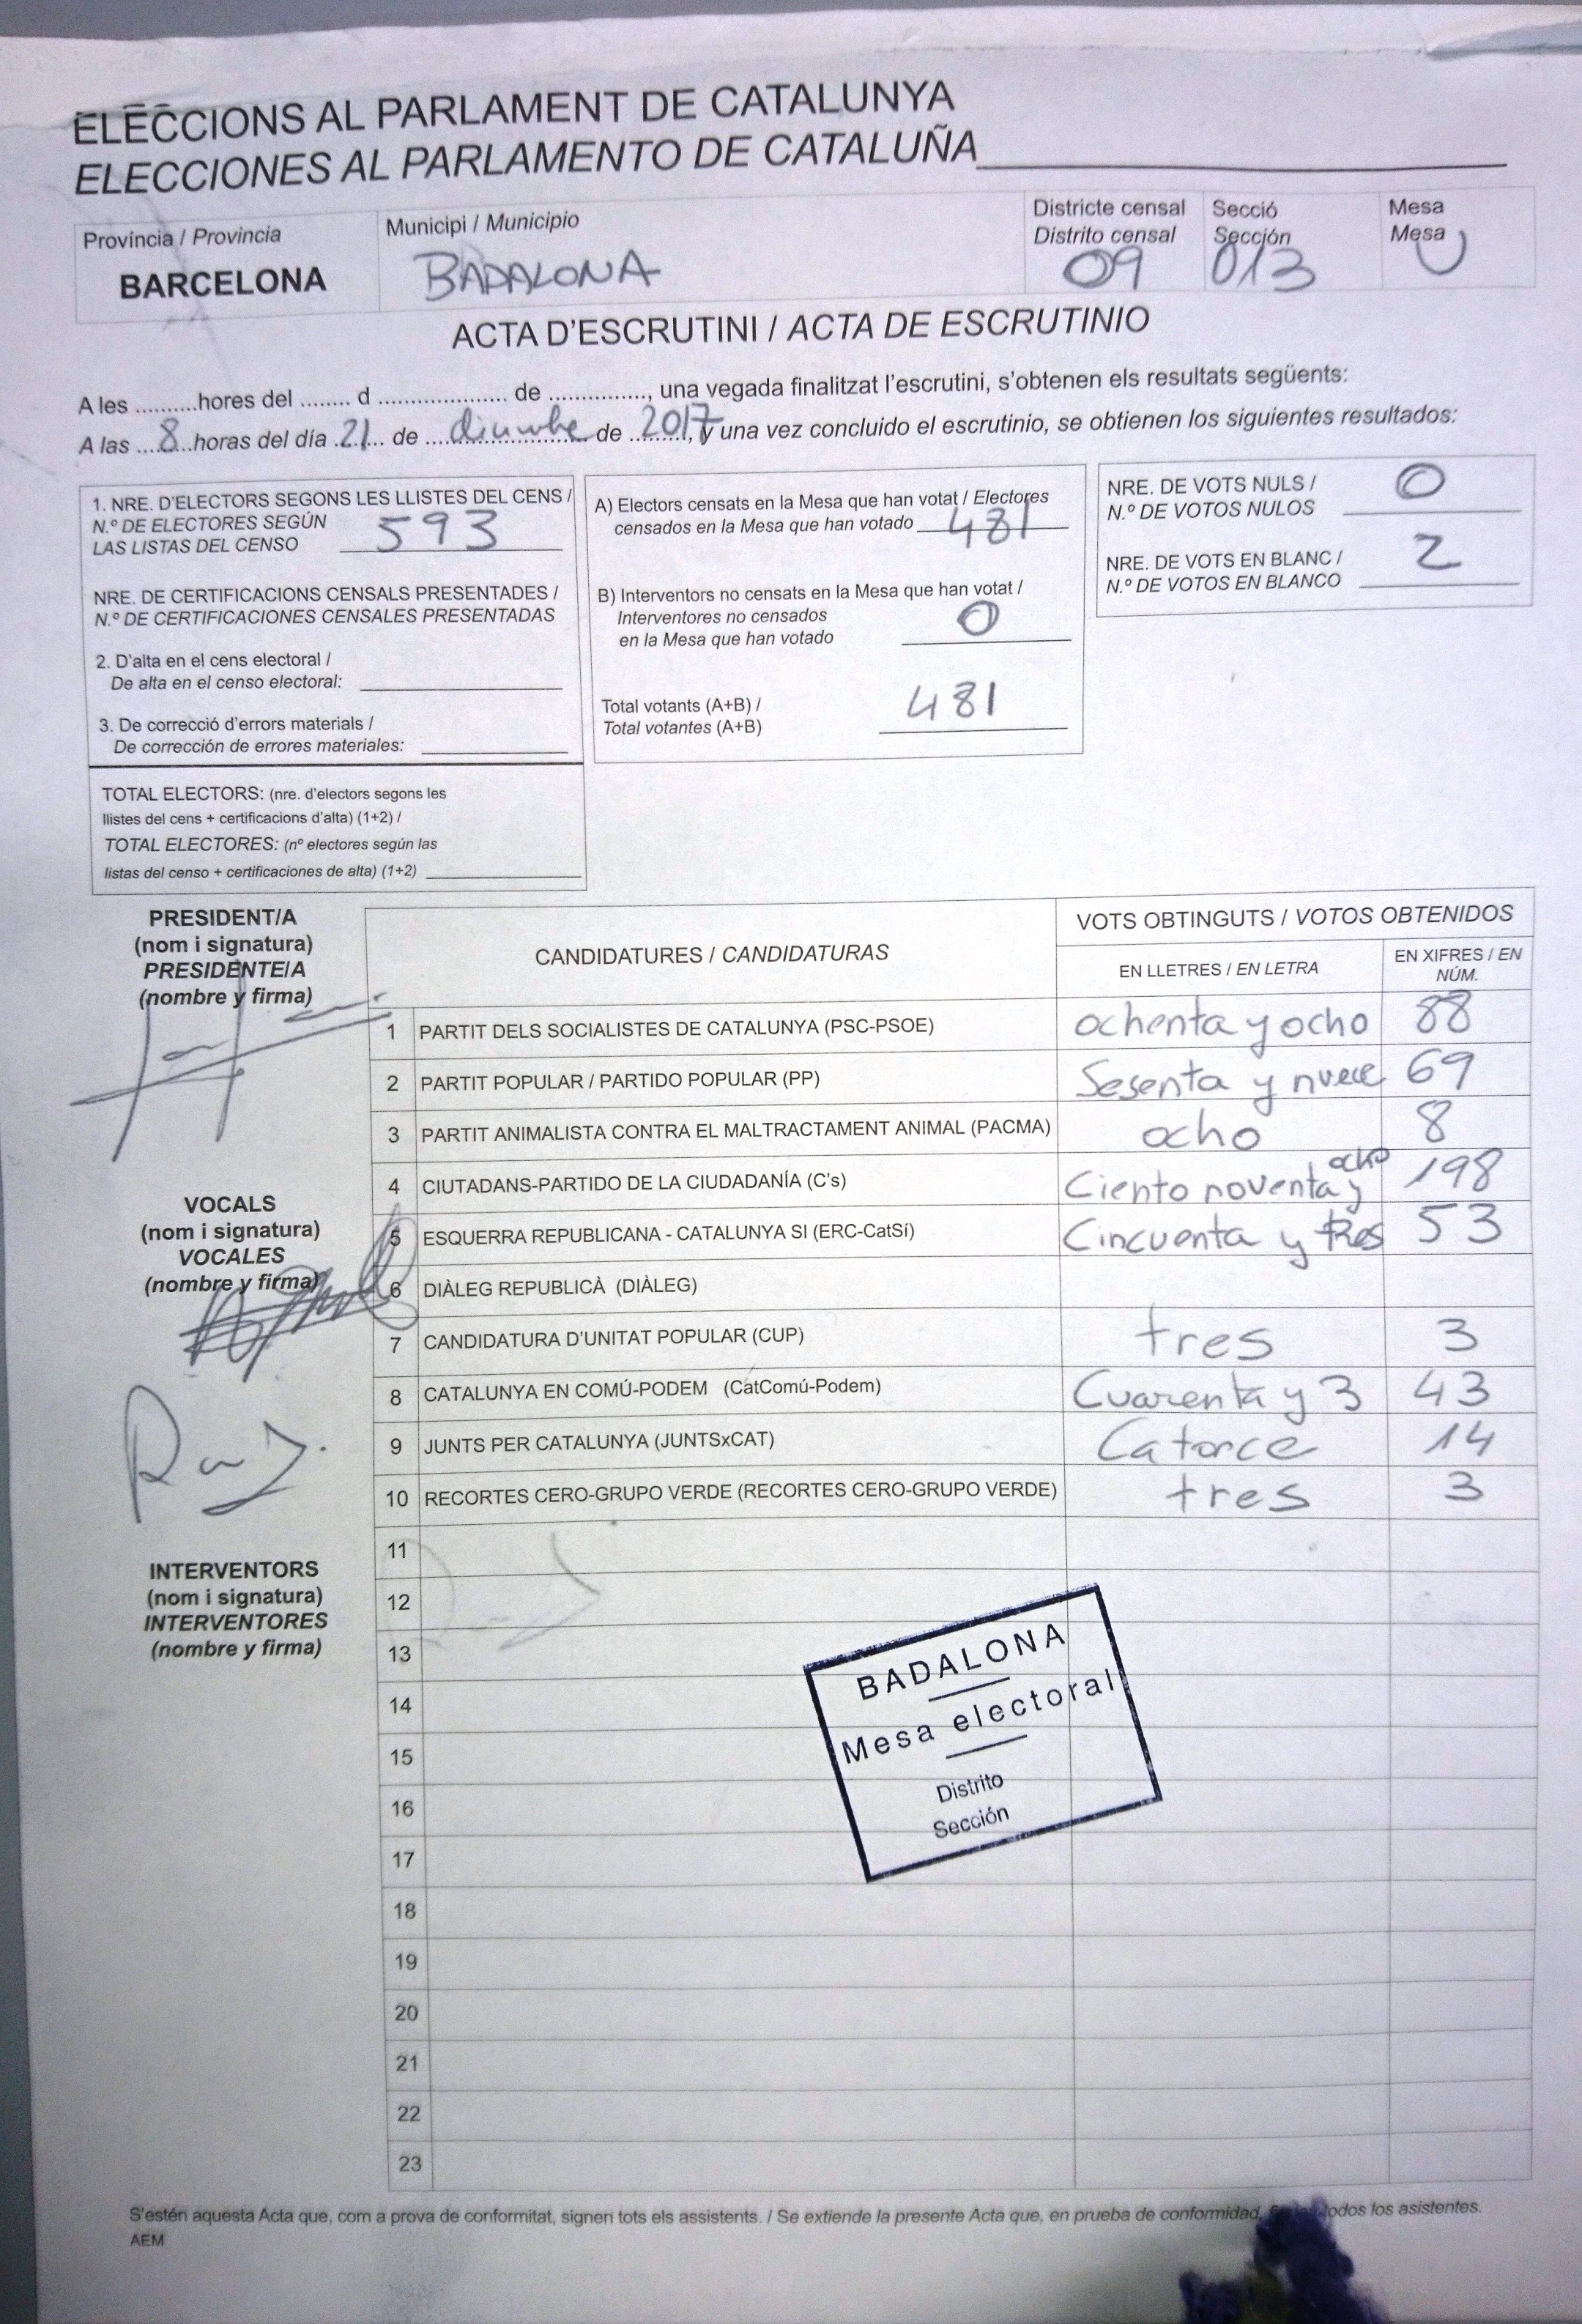 ELECCIONS AL PARLAMENT DE CATALUNYA
ELECCIONES AL PARLAMENTO DE CATALUÑA
Província / Provincia
BARCELONA
Municipi / Municipio
BADALONA
Districte censal
Distrito censal
09
Secció
Sección
013
Mesa
Mesa
U
ACTA D'ESCRUTINI / ACTA DE ESCRUTINIO
A les ..........hores del ........ d .................... de ..............., una vegada finalitzat l'escrutini, s'obtenen els resultats següents:
A las ....8...horas del día .21... de ....diciembre de ..2017, y una vez concluido el escrutinio, se obtienen los siguientes resultados:
1. NRE. D'ELECTORS SEGONS LES LLISTES DEL CENS /
N.º DE ELECTORES SEGÚN
LAS LISTAS DEL CENSO 593
NRE. DE CERTIFICACIONS CENSALS PRESENTADES /
N.º DE CERTIFICACIONES CENSALES PRESENTADAS
2. D'alta en el cens electoral /
De alta en el censo electoral:
3. De correcció d'errors materials /
De corrección de errores materiales:
TOTAL ELECTORS: (nre. d'electors segons les
llistes del cens + certificacions d'alta) (1+2) /
TOTAL ELECTORES: (nº electores según las
listas del censo + certificaciones de alta) (1+2)
A) Electors censats en la Mesa que han votat / Electores
censados en la Mesa que han votado 481
B) Interventors no censats en la Mesa que han votat /
Interventores no censados
en la Mesa que han votado 0
Total votants (A+B) /
Total votantes (A+B) 481
NRE. DE VOTS NULS /
N.º DE VOTOS NULOS 0
NRE. DE VOTS EN BLANC /
N.º DE VOTOS EN BLANCO 2
PRESIDENT/A
(nom i signatura)
PRESIDENTE/A
(nombre y firma)
VOCALS
(nom i signatura)
VOCALES
(nombre y firma)
INTERVENTORS
(nom i signatura)
INTERVENTORES
(nombre y firma)
CANDIDATURES / CANDIDATURAS
VOTS OBTINGUTS / VOTOS OBTENIDOS
EN LLETRES / EN LETRA
EN XIFRES / EN
NÚM.
1 PARTIT DELS SOCIALISTES DE CATALUNYA (PSC-PSOE) ochenta y ocho 88
2 PARTIT POPULAR / PARTIDO POPULAR (PP) Sesenta y nueve 69
3 PARTIT ANIMALISTA CONTRA EL MALTRACTAMENT ANIMAL (PACMA) ocho 8
4 CIUTADANS-PARTIDO DE LA CIUDADANÍA (C's) Ciento noventa y ocho 198
5 ESQUERRA REPUBLICANA - CATALUNYA SI (ERC-CatSí) Cincuenta y tres 53
6 DIÀLEG REPUBLICÀ (DIÀLEG)
7 CANDIDATURA D'UNITAT POPULAR (CUP) tres 3
8 CATALUNYA EN COMÚ-PODEM (CatComú-Podem) Cuarenta y 3 43
9 JUNTS PER CATALUNYA (JUNTSxCAT) Catorce 14
10 RECORTES CERO-GRUPO VERDE (RECORTES CERO-GRUPO VERDE) tres 3
11
12
13
14
15
16
17
18
19
20
21
22
23
BADALONA
Mesa electoral
Distrito
Sección
S'estén aquesta Acta que, com a prova de conformitat, signen tots els assistents. / Se extiende la presente Acta que, en prueba de conformidad, todos los asistentes.
AEM